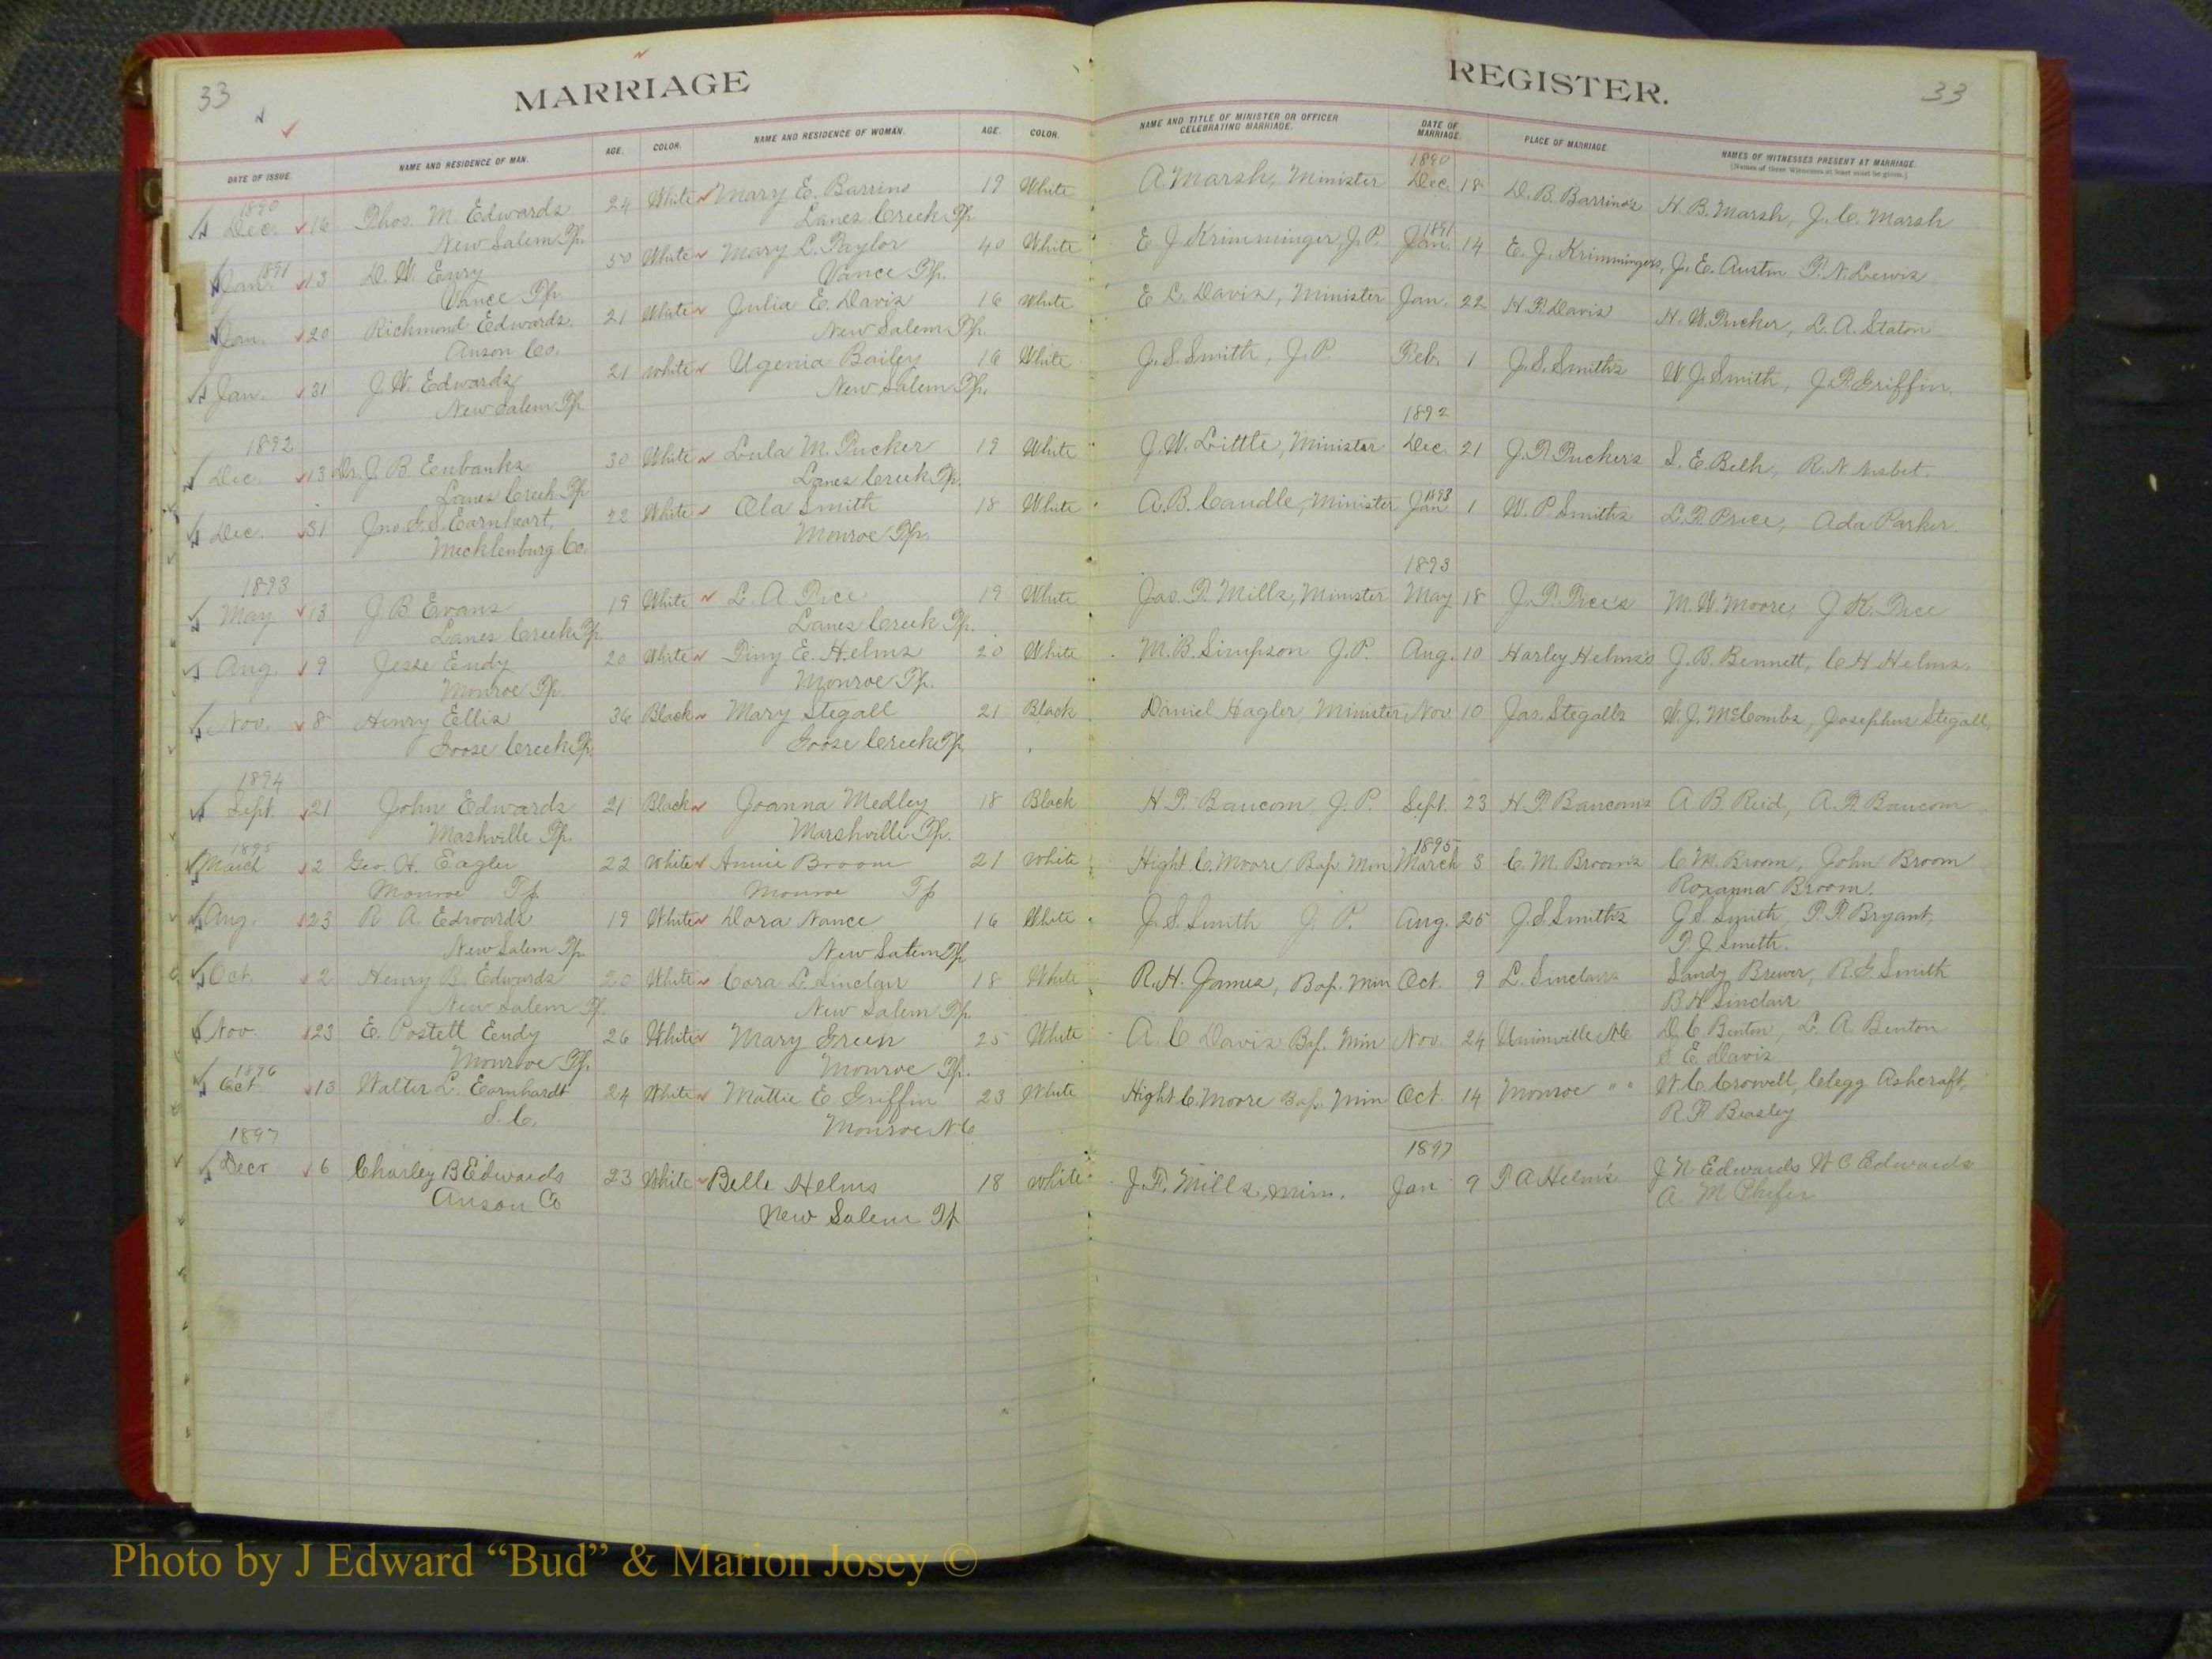 33 MARRIAGE REGISTER. 33
DATE OF ISSUE. NAME AND RESIDENCE OF MAN. AGE. COLOR. NAME AND RESIDENCE OF WOMAN. AGE. COLOR. NAME AND TITLE OF MINISTER OR OFFICER CELEBRATING MARRIAGE. DATE OF MARRIAGE. PLACE OF MARRIAGE NAMES OF WITNESSES PRESENT AT MARRIAGE.
1890 1890
Dec. 16 Thos. M Edwards 24 White Mary E. Barrino 19 White A Marsh, Minister Dec. 18 D. B. Barrino's H. B. Marsh, J. C. Marsh
New Salem Tp. Lanes Creek Tp
1891 1891
Jan. 13 D. W. Eury 50 White Mary L. Taylor 40 White E J Krimminger, J. P. Jan. 14 E. J. Krimmingers, J. E. Austin T. N. Lewis
Vance Tp. Vance Tp.
Jan. 20 Richmond Edwards. 21 White Julia E. Davis 16 White E L. Davis, Minister Jan. 22 H. T. Davis H. W. Tucker, L. A. Staton
Anson Co. New Salem Tp.
Jan. 31 J. W. Edwards 21 white Ugenia Bailey 16 White J. S. Smith, J. P. Feb. 1 J. S. Smiths W. J. Smith, J. P. Griffin.
New Salem Tp New Salem Tp.
1892 1892
Dec. 13 Dr. J B Eubanks 30 White Lula M. Tucker 19 White J. W. Little, Minister Dec. 21 J. P. Tucker's S. E. Belk, R. N. Nisbet.
Lanes Creek Tp Lanes Creek Tp.
1893
Dec. 31 Jno. F. S. Earnheart, 22 White Ola Smith 18 White A. B. Caudle, Minister Jan 1 W. P. Smiths L. P. Price, Ada Parker.
Mecklenburg Co. Monroe Tp.
1893 1893
May 13 J B Evans 19 White L. A Tice 19 White Jas. P. Mills, Minister May 18 J. P. Tice's M. W. Moore, J. K. Tice
Lanes Creek Tp. Lanes Creek Tp.
Aug. 9 Jesse Eudy 20 White Tiny E. Helms 20 White M. B. Simpson J. P. Aug. 10 Harley Helms's J. B. Bennett, C H Helms.
Monroe Tp. Monroe Tp.
Nov. 8 Henry Ellis 36 Black Mary Stegall 21 Black Daniel Hagler, Minister Nov. 10 Jas. Stegalls W. J. McCombs, Josephus Stegall,
Goose Creek Tp. Goose Creek Tp.
1894
Sept. 21 John Edwards 21 Black Joanna Medley 18 Black H. P. Baucom, J. P. Sept. 23 H. P. Baucoms A B. Reid, A. P. Baucom
Mashville Tp. Marshville Tp.
1895 1895
March 2 Geo. H. Eagler 22 White Annie Broom 21 White Hight C. Moore Bap. Min. March 3 C. M. Broom's C. M. Broom, John Broom
Monroe Tp Monroe Tp Roxanna Broom.
Aug. 23 R A. Edwards 19 White Dora Nance 16 White J. S. Smith J. P. Aug. 25 J. S. Smiths J. S. Smith, P. P. Bryant,
New Salem Tp New Salem Tp P. J. Smith.
Oct. 2 Henry B. Edwards 20 White Cora L. Sinclair 18 White R. H. James, Bap. Min Oct. 9 L. Sinclairs Sandy Brewer, R. G. Smith
New Salem Tp. New Salem Tp. B. H. Sinclair
Nov. 23 E. Postell Eudy 26 White Mary Green 25 White A. C Davis Bap. Min Nov. 24 Unionville N.C D. C Benton, L. A. Benton
Monroe Tp. Monroe Tp. S. E. Davis
1896
Oct 13 Walter L. Earnhardt 24 White Mattie E. Griffin 23 White Hight C. Moore Bap. Min Oct 14 Monroe " " W. C. Crowell, Clegg Ashcraft,
S. C. Monroe N. C. R. F. Beasley
1897 1897
Decr 6 Charley B Edwards 23 White Belle Helms 18 white J. F. Mills, min. Jan 9 T A Helm's J N Edwards W C Edwards
Anson Co New Salem Tp A M Phifer
Photo by J Edward “Bud” & Marion Josey ©